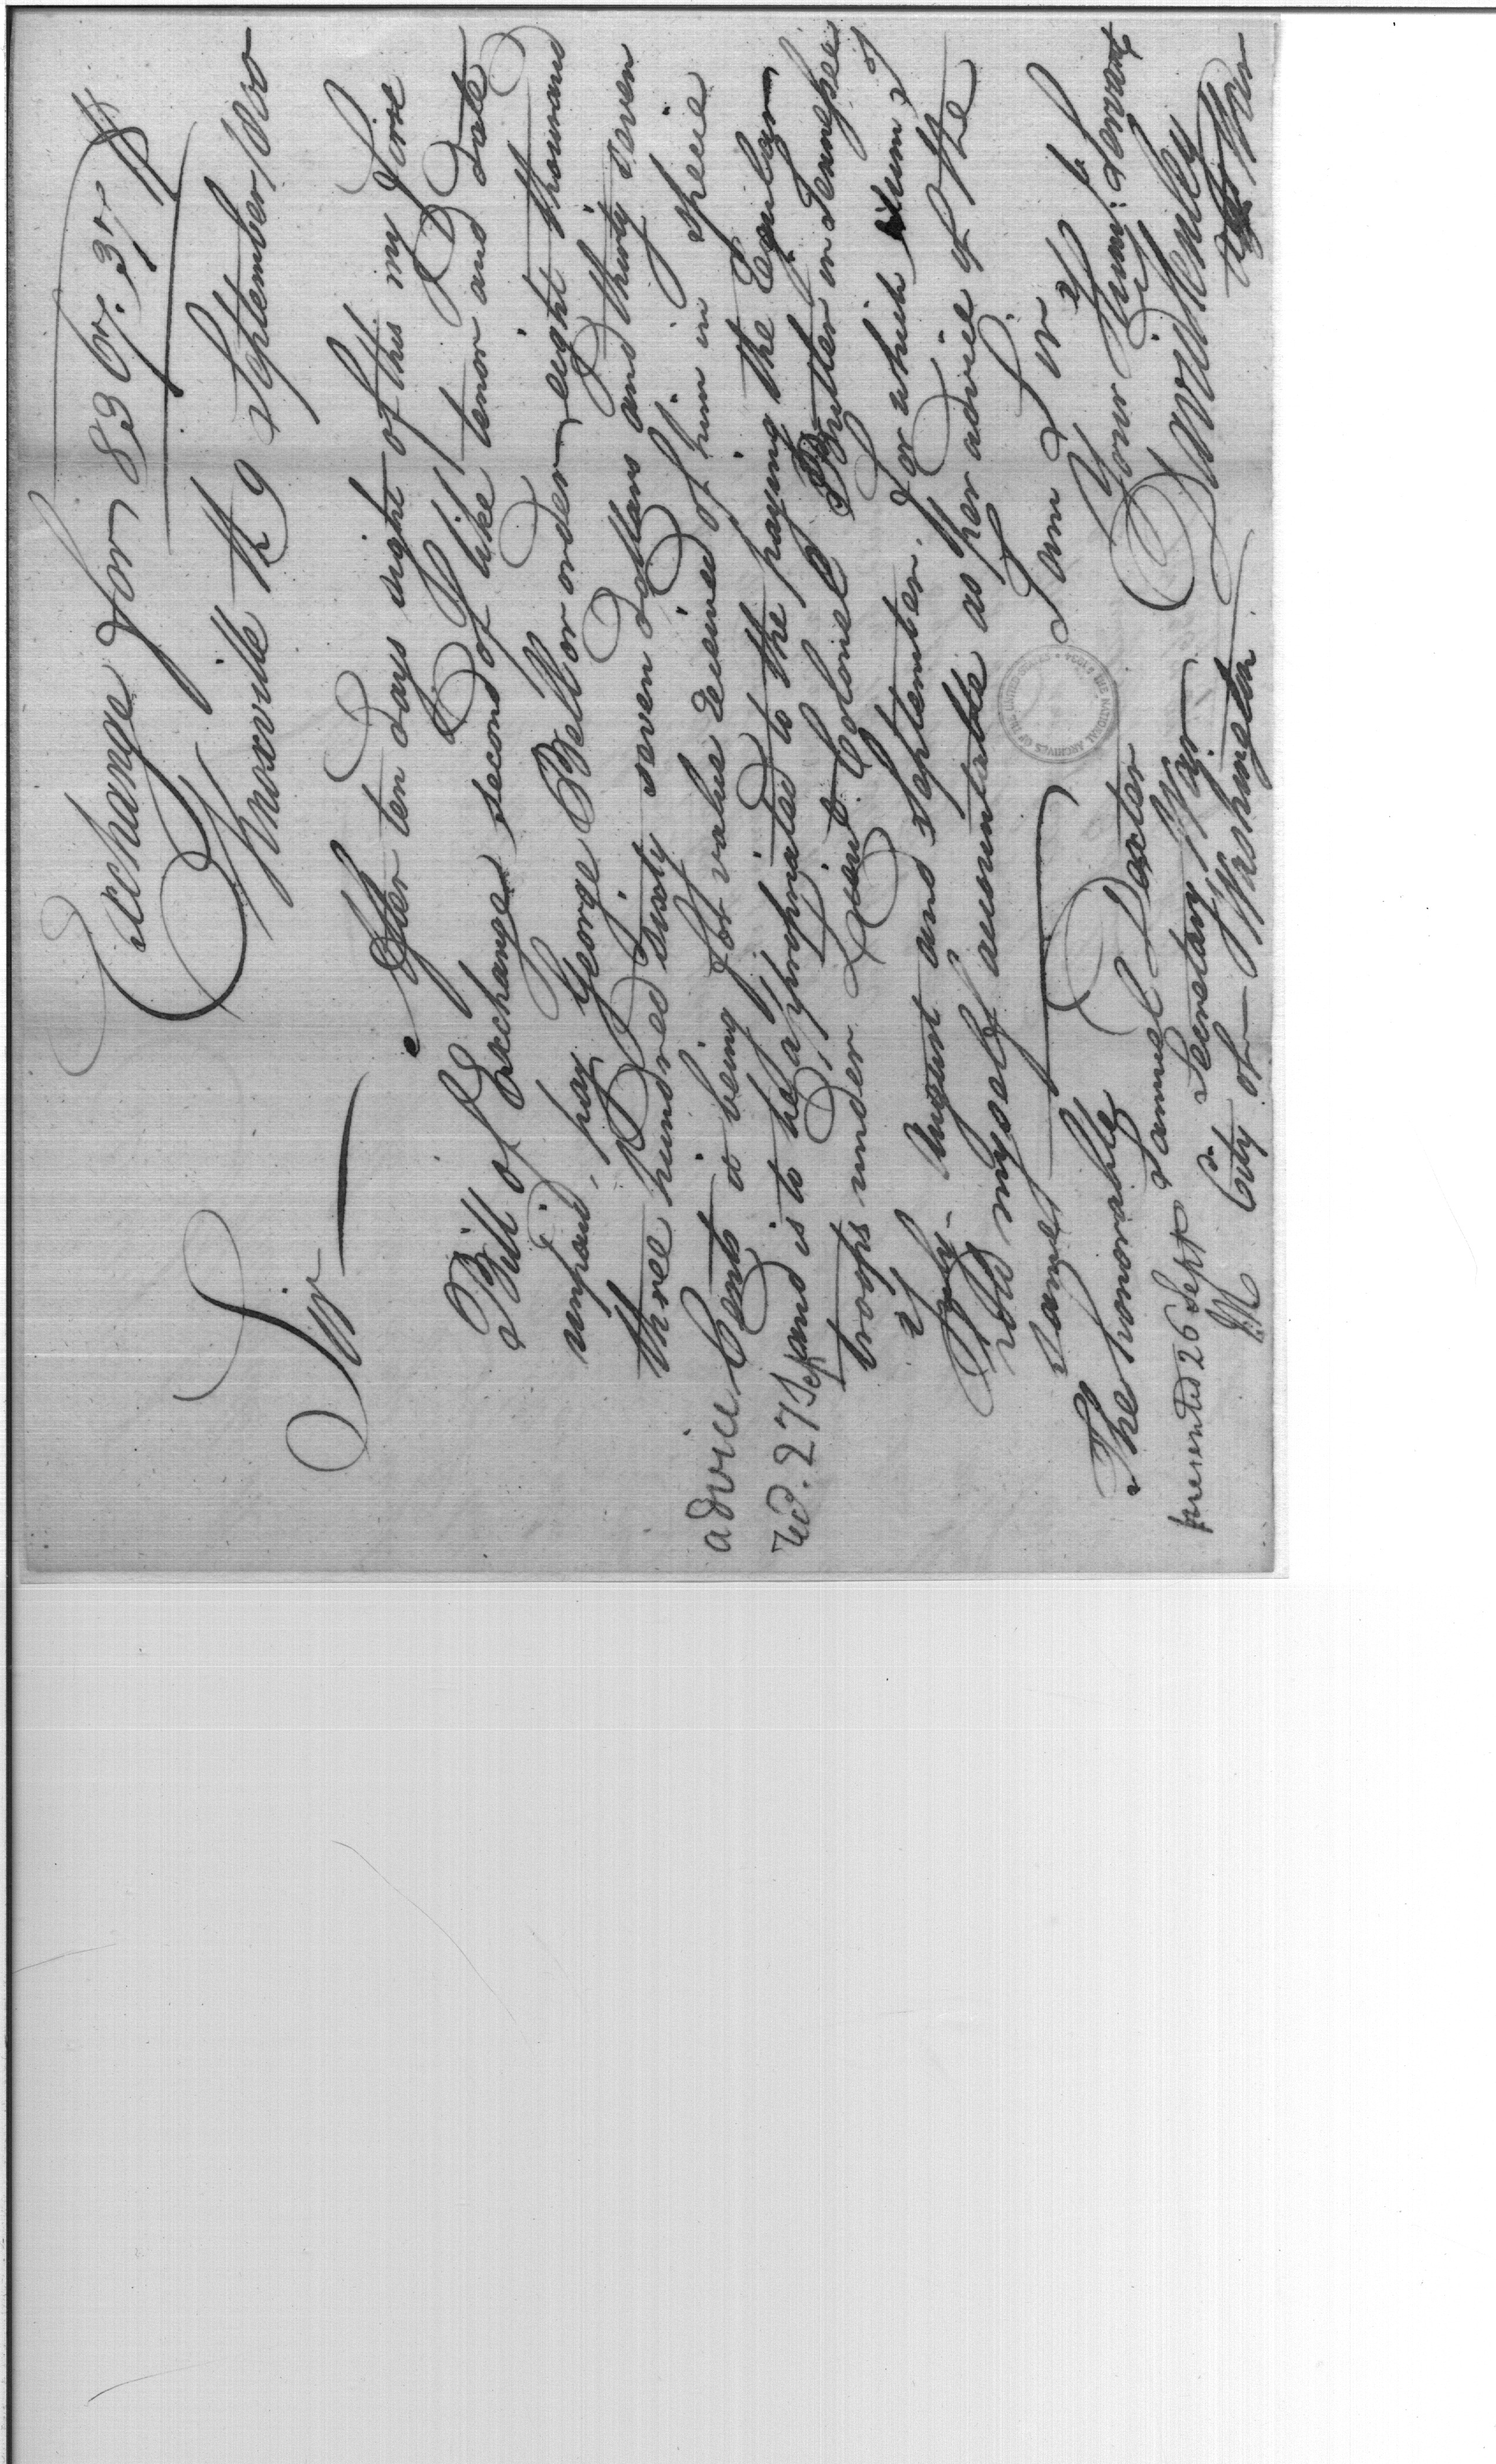 Exchange for 8367.37
Knoxville the 9 September 1800
Sir
After ten days sight of this my first
Bill of Exchange second of like tenor and date
unpaid, pay George Bell or order eight thousand
three hundred sixty seven dollars and thirty seven
Cents it being for value received of him in specie
and is to be appropriated to the paying the regular
troops under Lieut. Colonel Butler in Tennessee
July August and September, for which sum I
hold myself accountable as per advice of the
same
I am Sir
Your Hum: Servant
David Henley
advice
red. 27 Sep
The honorable
Samuel Dexter
Secretary War
City of Washington
presented 26 Sept
THE NATIONAL ARCHIVES OF THE UNITED STATES